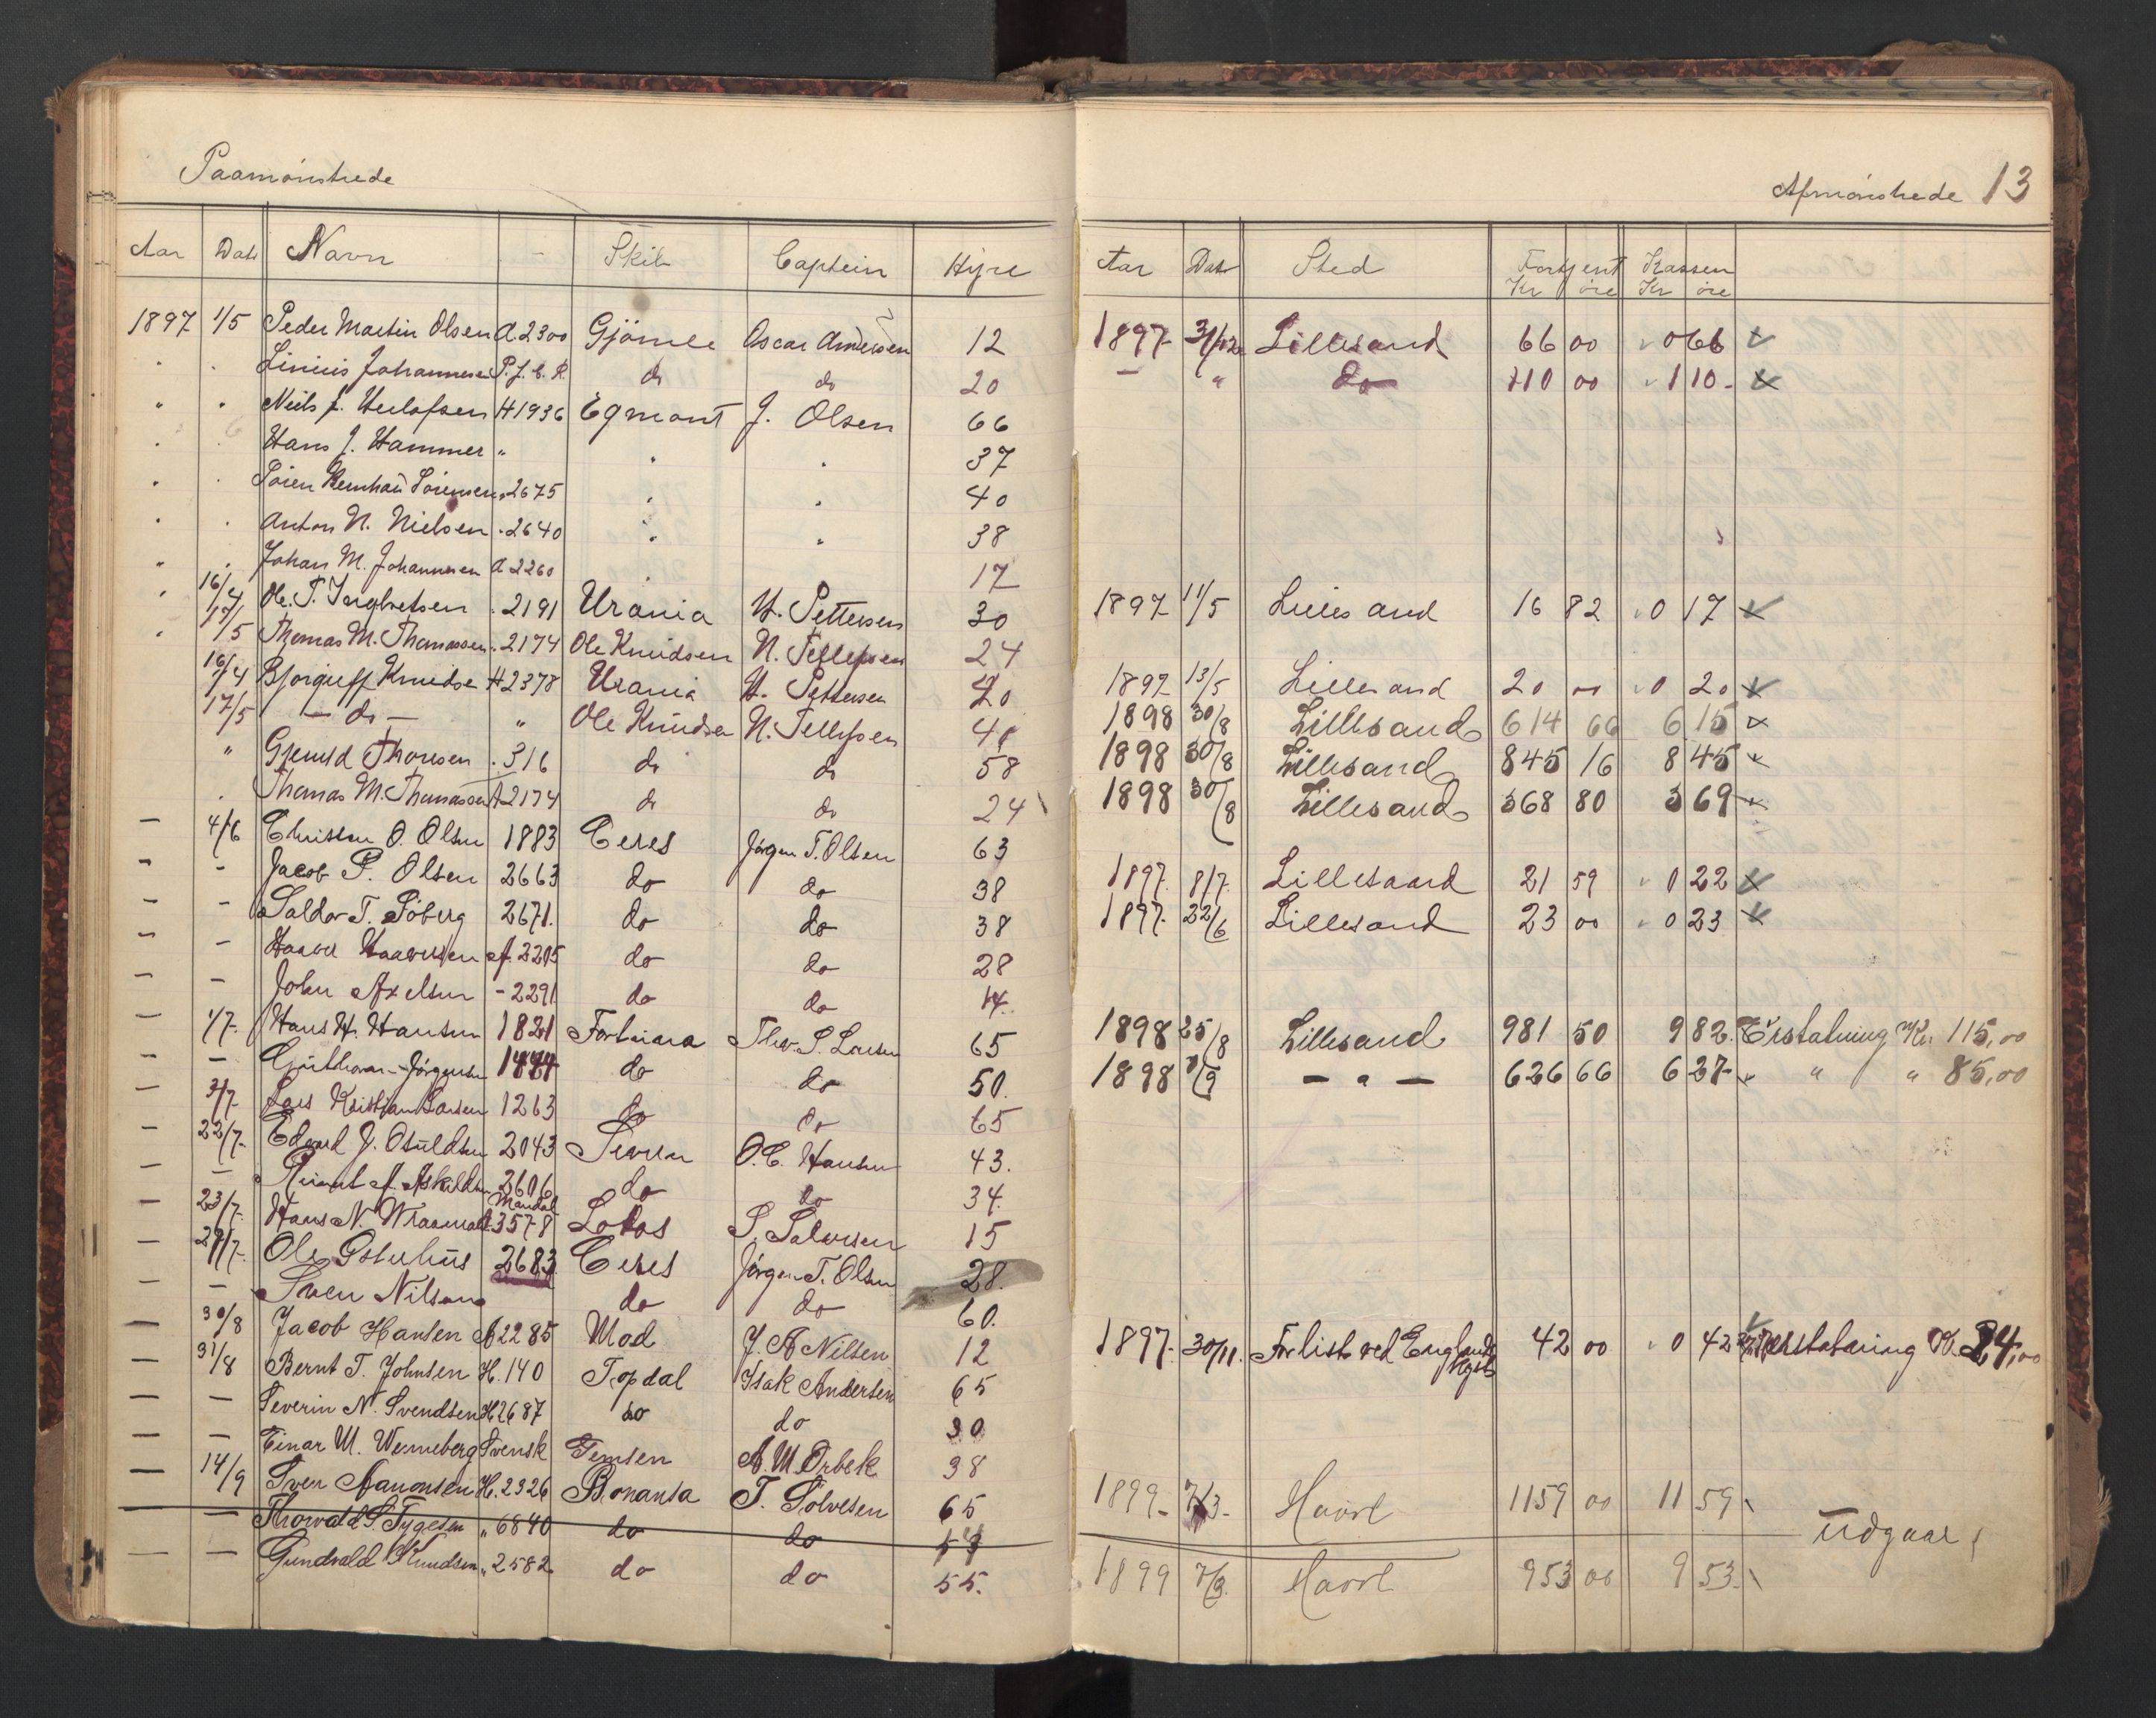 Paamønstrede
Afmønstrede 13
Aar Dato Navn - Skib Captein Hyre Aar Dato Sted Fortjent Kassen
Kr øre Kr øre
1897 1/5 Peder Martin Olsen A 2300 Gjömle Oscar Andersen 12 1897 31/12 Lillesand 66 00 0 66
" " Linius Johannesen P.J.C.R. do do 20 — " do 110 00 1 10-
" " Niels J. Herlofsen H 1936 Egmont J. Olsen 66
" " Hans J. Hammer " " " 37
" " Sören Bernhard Sörensen " 2675 " " 40
" " Anton N. Nielsen " 2640 " " 38
" " Johan M. Johannesen A 2260 " 17
" 16/4 Ole T. Ingbretsen " 2191 Urania H. Pettersen 30 1897 11/5 Lillesand 16 82 0 17
" 17/5 Thomas M. Thomassen " 2174 Ole Knudsen N. Tellefsen 24
16/4 Bjorguff Knudsen H 2378 Urania H. Pettersen 40 1897 13/5 Lillesand 20 00 0 20
17/5 — do — " Ole Knudsen N. Tellefsen 40 1898 30/8 Lillesand 614 66 6 15
" Gjeruld Thoresen " 316 do do 58 1898 30/8 Lillesand 845 16 8 45
" Thomas M. Thomassen A 2174 do do 24 1898 30/8 Lillesand 368 80 3 69
— 4/6 Christen O. Olsen 1883 Ceres Jörgen T. Olsen 63
— - Jacob P. Olsen 2663 do do 38 1897 8/7 Lillesand 21 59 0 22
— - Salder T. Söberg 2671. do do 38 1897 22/6 Lillesand 23 00 0 23
— - Haavel Haavelsen A. 2205 do do 28
— - John Axelsen - 2291 do do 14.
— 1/7. Hans H. Hansen 1821 Fortuna Thor. S. Larsen 65 1898 25/8 Lillesand 981 50 9 82. Erstatning Kr. 115,00
— - Jörgensen 1474 do do 50. 1898 /9 — " — 636 66 6 37 " " " 85,00
— 3/7. Lars Kristian Larsen 1263 do do 65
— 22/7. Edvard J. Osuldsen 2043 O.C. Hansen 43.
— - A. Askildsen 2606 do do 34.
— 23/7. Hans N. Mandal 3578 Lotos S. Salvesen 15
— 29/7. Ole Osterhus 2683 Ceres Jörgen T. Olsen 28.
— - Sven Nilsen do do 60.
— 30/8 Jacob Hansen A 2285 Mod J. A Nilsen 12 1897. 30/11. Forlist ved Englands Kyst 42 00 0 42 Erstatning Kr. 24,00
— 31/8 Bernt T. Johnsen H. 140 Topdal Isak Andersen 65
— - Severin N. Svendsen H 2687 do do 30
— - Einar M. Wenneberg Svensk Gemsen A. M. Orbek 38
— 14/9 Sven Aanonsen H. 2326 Bonansa T. Solvesen 65 1899 7/3 Havre 1159 00 11 59
— Thorvald S. Tygesen " 6840 do do Udgaar
— - Gundvald Knudsen " 2582 do do 55. 1899 7/3 Havre 953 00 9 53.